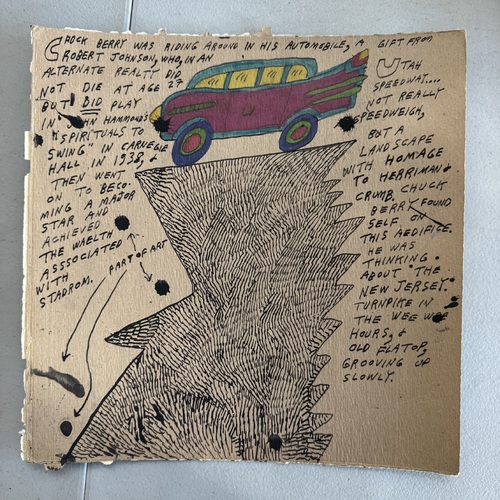 CHUCK BERRY WAS RIDING AROUND IN HIS AUTOMOBILE, A GIFT FROM
ROBERT JOHNSON, WHO, IN AN
ALTERNATE REALTY DID
NOT DIE AT AGE 27
BUT DID PLAY
IN JOHN HAMMOND'S
"SPIRITUALS TO
SWING" IN CARNEGIE
HALL IN 1938, &
THEN WENT
ON TO BECO-
MING A MAJOR
STAR AND
ACHIEVED
THE WAELTH
ASSSOCIATED
WITH
STADROM.
PART OF ART
UTAH
SPEEDWAY...
NOT REALLY
SPEEDWEIGH,
BUT A
LANDSCAPE
WITH HOMAGE
TO HERRIMAN &
CRUMB. CHUCK
BERRY FOUND
SELF ON
THIS AEDIFICE.
HE WAS
THINKING
ABOUT "THE
NEW JERSEY
TURNPIKE IN
THE WEE WEE
HOURS, &
OLD FLATOP,
GROOVING UP
SLOWLY.